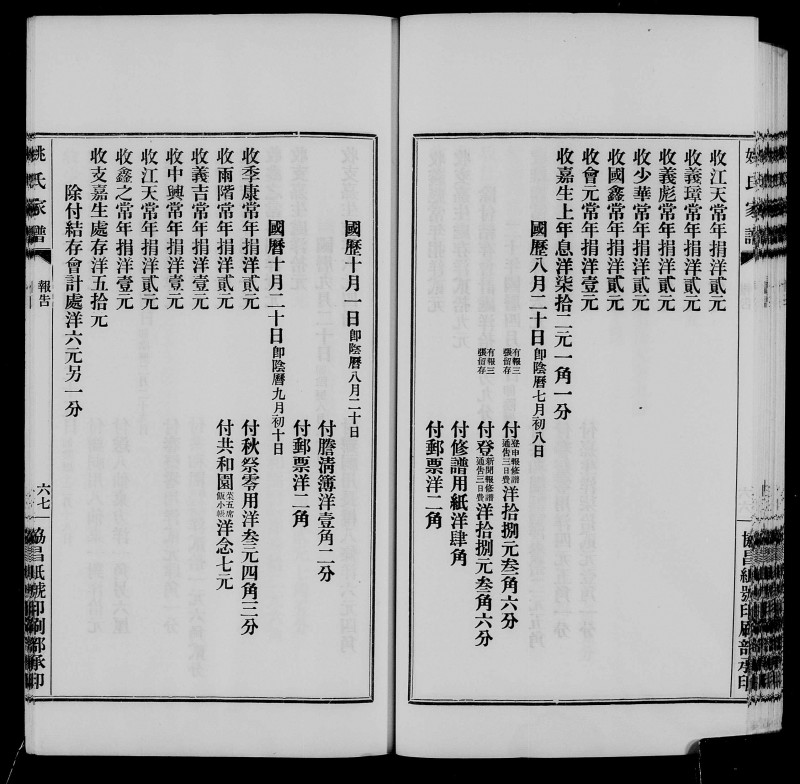 姚氏家譜
協昌紙號印刷部承印
收江天常年捐洋貳元
收義璋常年捐洋貳元
收義彪常年捐洋貳元
收少華常年捐洋貳元
收國鑫常年捐洋貳元
收會元常年捐洋壹元
收嘉生上年息洋柒拾二元一角一分
國歷八月二十日即陰曆七月初八日
有報三張留存 付登申報修譜通告三日費洋拾捌元叁角六分
有報三張留存 付登新聞報修譜通告三日費洋拾捌元叁角六分
付修譜用紙洋肆角
付郵票洋二角
國歷十月一日即陰曆八月二十日
付謄清簿洋壹角二分
付郵票洋二角
國曆十月二十日即陰曆九月初十日
收季康常年捐洋貳元 付秋祭零用洋叁元四角三分
收雨階常年捐洋貳元 付共和園菜五席飯小帳洋念七元
收義吉常年捐洋壹元
收中興常年捐洋壹元
收江天常年捐洋貳元
收鑫之常年捐洋壹元
收支嘉生處存洋五拾元
除付結存會計處洋六元另一分
姚氏家譜
報告
六七
協昌紙號印刷部承印